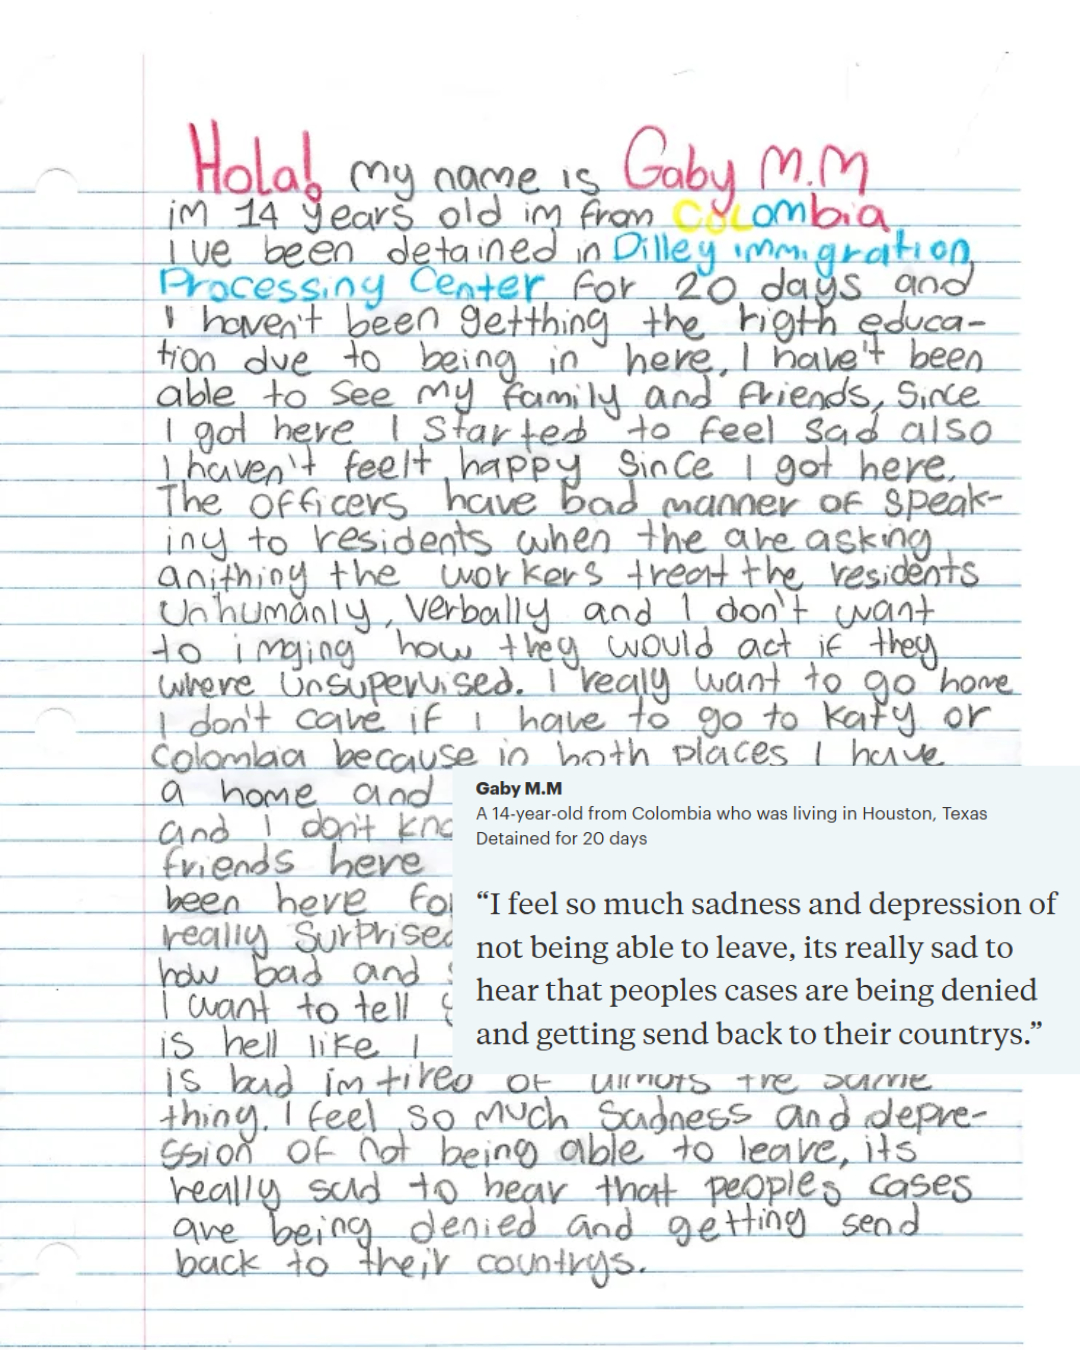 Hola! my name is Gaby M.M
im 14 years old im from COLombia
I've been detained in Dilley immigration
Processing Center for 20 days and
I haven't been getthing the rigth educa-
tion due to being in here, I have't been
able to see my family and friends, Since
I got here I started to feel sad also
I haven't feelt happy since I got here.
The officers have bad manner of speak-
iny to residents when the are asking
anithing the workers treat the residents
Unhumanly, verbally and I don't want
to imging how they would act if they
where unsupervised. I realy want to go home
I don't care if I have to go to Katy or
Colombia because in both places I have
a home and
and I don't
friends here
been here
really Surprised
how bad and
I want to tell
is hell like I
is bad im tired of the same
thing. I feel so much sadness and depre-
ssion of not being able to leave, its
really sad to hear that peoples cases
are being denied and getting send
back to their countrys.
Gaby M.M
A 14-year-old from Colombia who was living in Houston, Texas
Detained for 20 days
“I feel so much sadness and depression of
not being able to leave, its really sad to
hear that peoples cases are being denied
and getting send back to their countrys.”